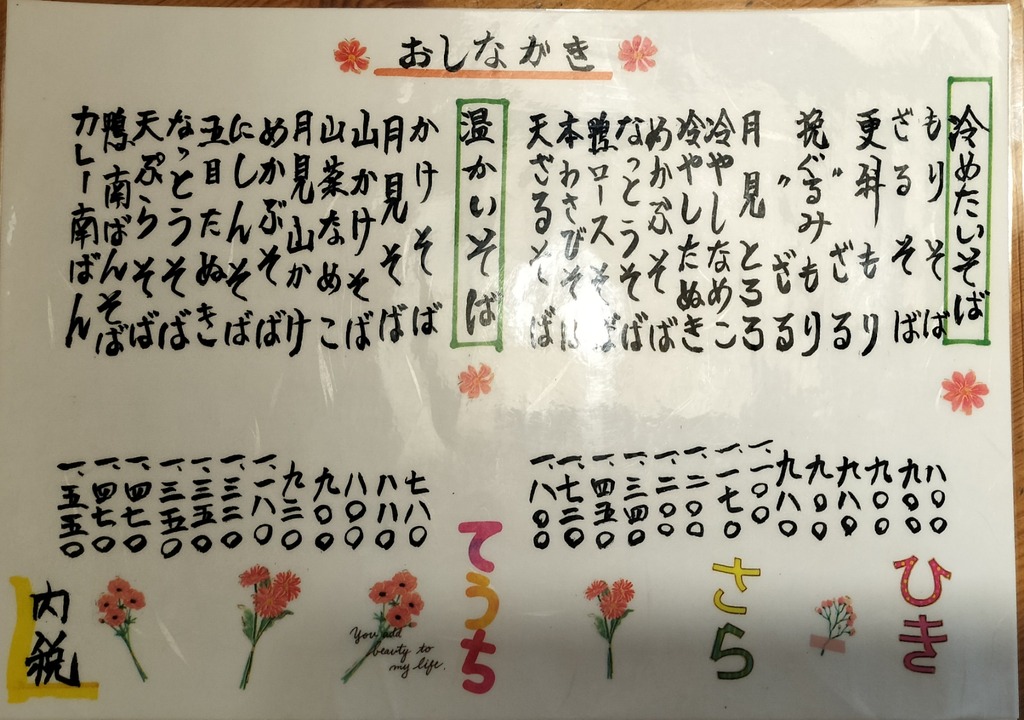 おしながき
冷めたいそば
もりそば 八〇〇
ざるそば 九〇〇
更科もり 九〇〇
ざる 九八〇
挽ぐるみもり 九〇〇
〃 ざる 九八〇
月見とろろ 一、一〇〇
冷やしなめこ 一、一七〇
冷やしたぬき 一、二〇〇
めかぶそば 一、二〇〇
なっとうそば 一、三四〇
鴨ロースそば 一、四五〇
本わさびそば 一、七二〇
天ざるそば 一、八〇〇
温かいそば
かけそば 七八〇
月見そば 八八〇
山かけそば 八〇〇
山菜なめこ 九〇〇
月見山かけ 九二〇
めかぶそば 一、一八〇
にしんそば 一、三二〇
五目たぬき 一、三五〇
なっとうそば 一、三五〇
天ぷらそば 一、四七〇
鴨南ばんそば 一、四七〇
カレー南ばん 一、五五〇
ひき
さら
てうち
You add
beauty to
my life.
内税